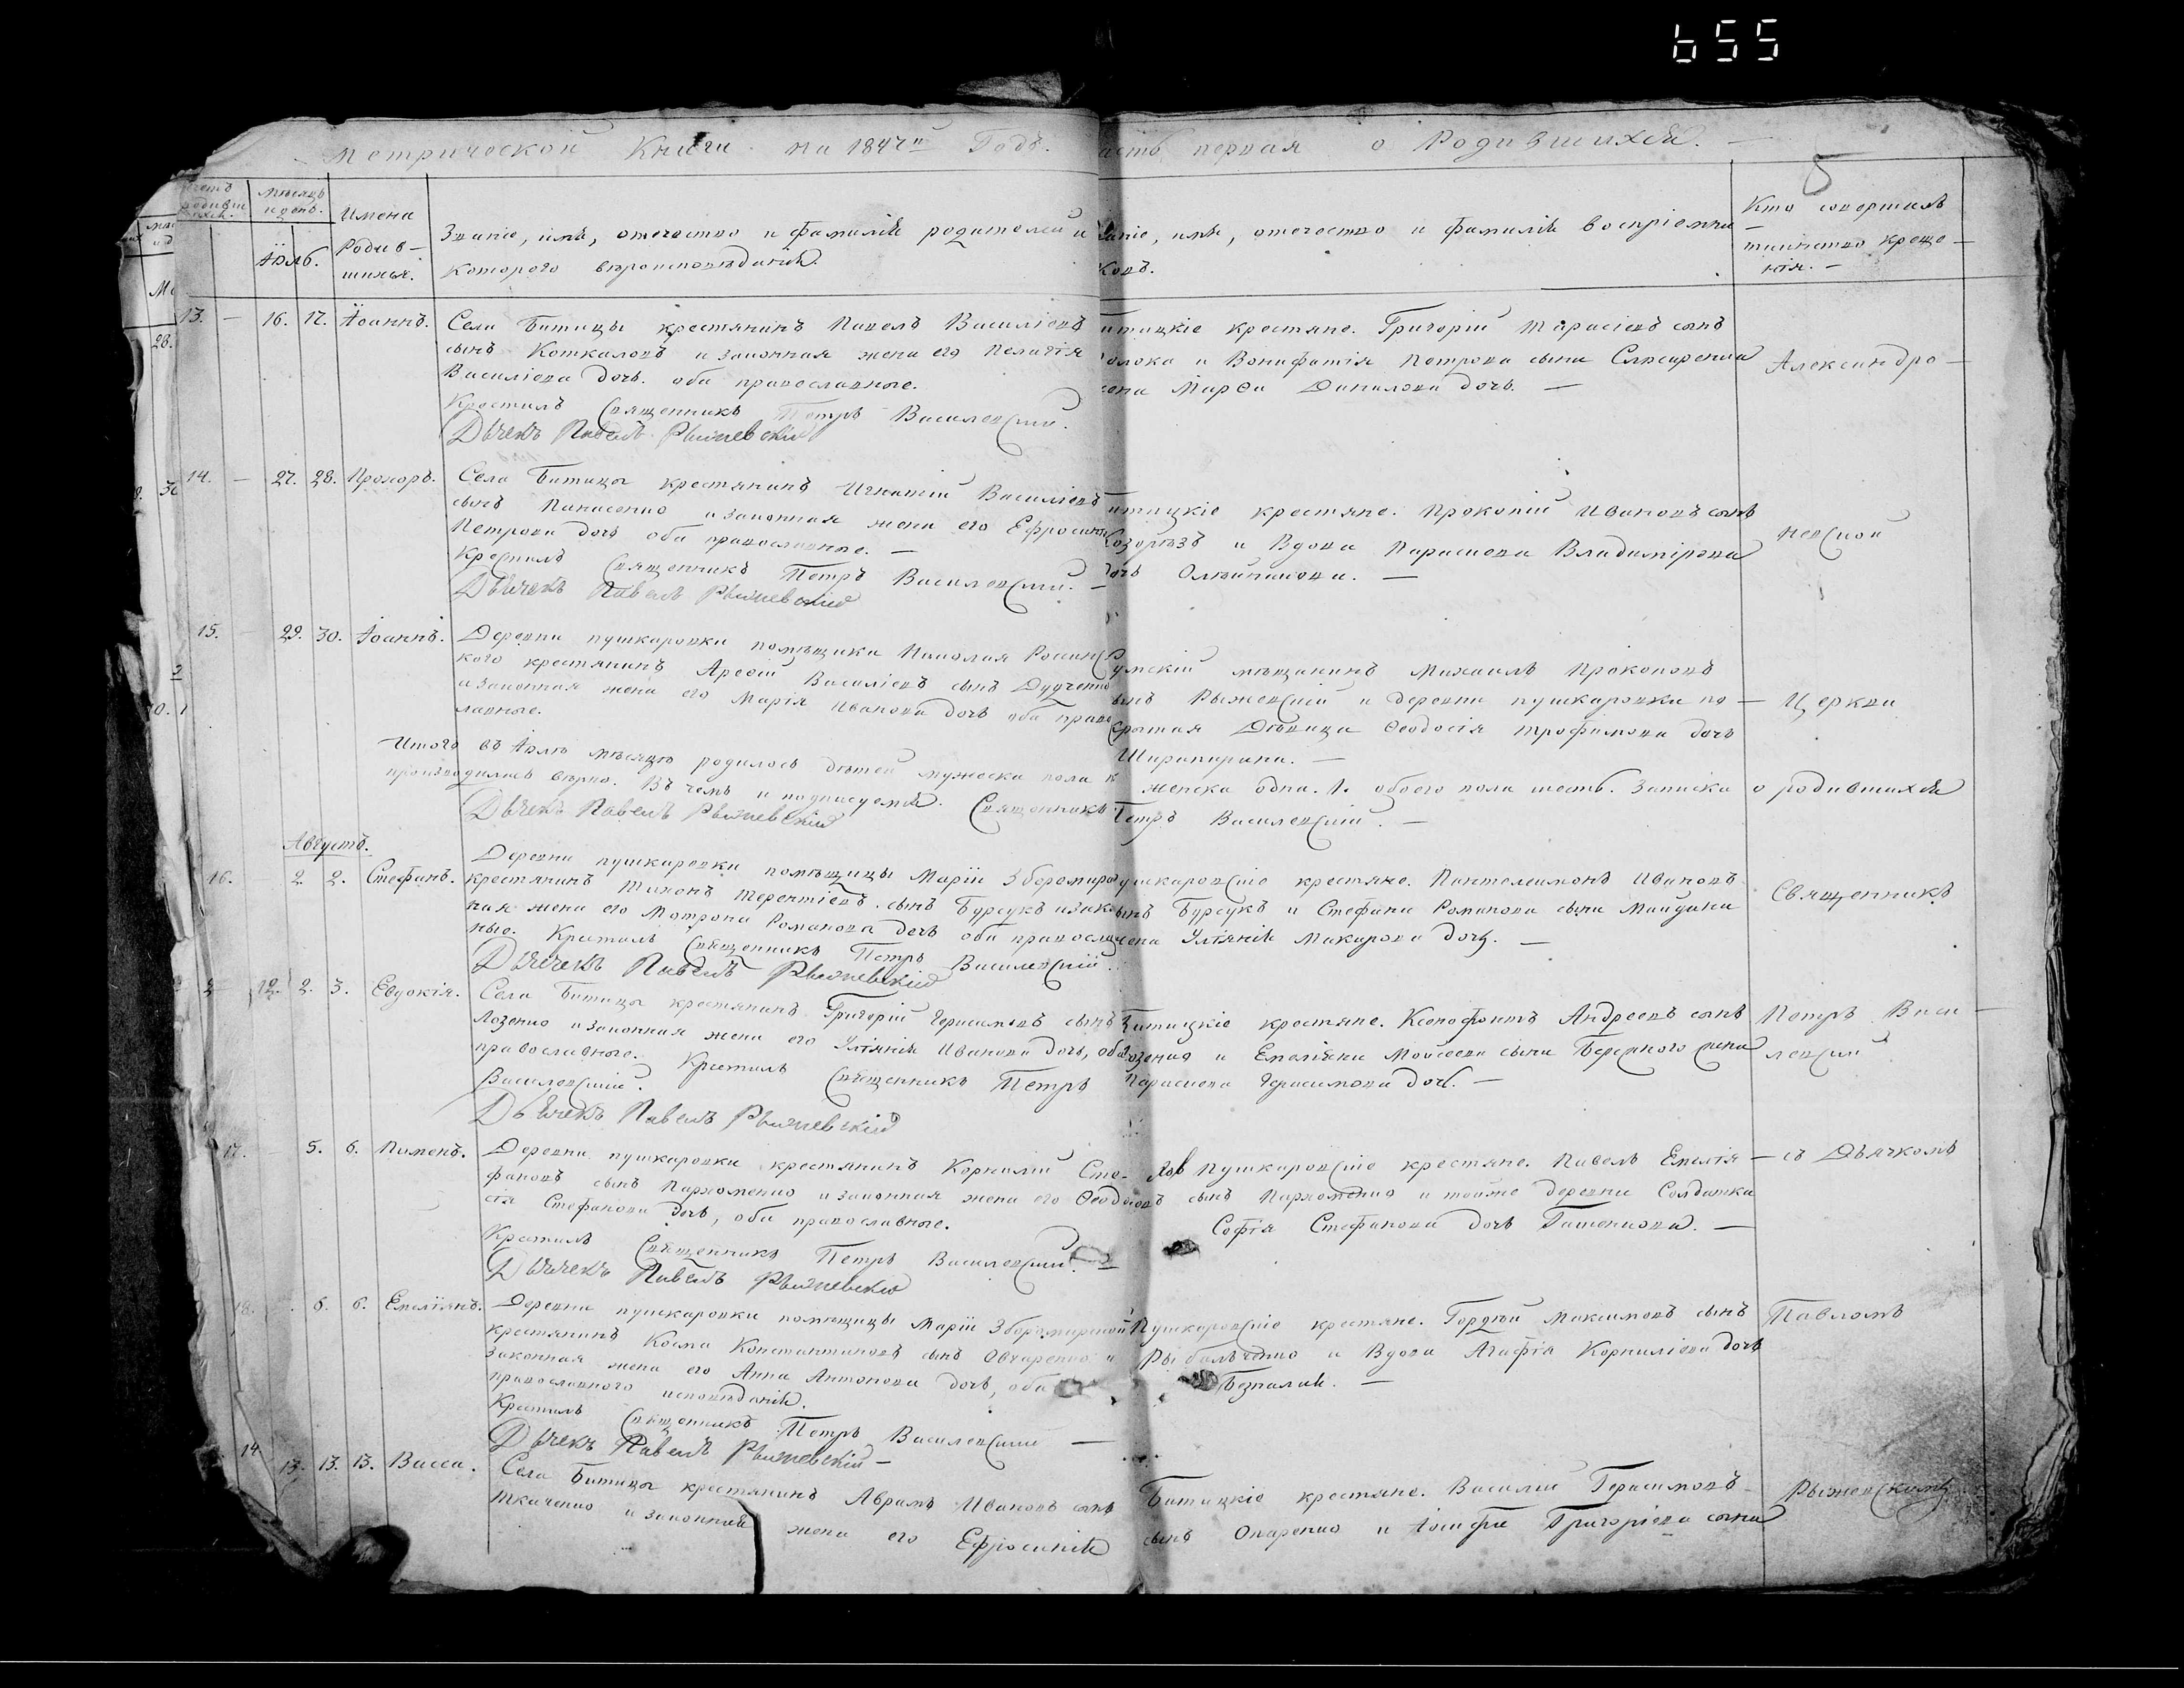 655
Метрической Книги на 1847й Годъ. асть первая о Родившихся.
5
Имена Родив-шихся.
Іюль.
Званіе, имя, отечество и фамилія родителей и
котораго вѣроисповѣданія.
аніе, имя, отечество и фамилія воспріемни
ковъ.
Кто совершалъ
таинство креще-
нія.
13. — 16. 17. Іоаннъ.
Села Битицы крестянинъ Павелъ Василіевъ
сынъ Коткаловъ и законная жена его Пелагія
Василіева дочь. оба православные.
Крестилъ Священникъ Петръ Василевскій.
Дьячекъ Павелъ Рыжевскій
итицкіе крестяне. Григорій Тарасіевъ сынъ
олока и Вонифатія Петрова сына Слюсаренка
жена Марѳа Данилова дочь. —
Александро-
14. — 27. 28. Прохоръ.
Села Битицы крестянинъ Игнатій Василіевъ
сынъ Панасенко и законная жена его Ефросинія
Петрова дочь оба православные. —
Крестилъ Священникъ Петръ Василевскій. —
Дьячекъ Павелъ Рыжевскій
итицкіе крестяне. Прокопій Ивановъ сынъ
Козорѣзъ и Вдова Параскева Владимірова
дочь Олѣйникова. —
невской
15. 29. 30. Іоаннъ.
Деревни пушкаровки помѣщика Николая Россинс
кого крестянинъ Арефій Василіевъ сынъ Дудченко
и законная жена его Марія Иванова дочь оба право
лавные.
умскій мѣщанинъ Михаилъ Прокоповъ
ынъ Рыжевскій и деревни пушкаровки по —
Дѣвица Ѳеодосія трофимова дочь
—
Церкви
Итого въ Іюлѣ мѣсяцѣ родилось дѣтей мужеска пола
женска одна. 1. обоего пола шесть. Записка о родившихся
производилась вѣрно. Въ чемъ и подписуемся. Священникъ Петръ Василевскій. —
Дьячекъ Павелъ Рыжевскій
Августъ.
16. 2. 2. Стефанъ.
Деревни пушкаровки помѣщицы Маріи Збороміро
крестянинъ Тихонъ Терентіевъ сынъ Бурсукъ и закон
ная жена его Матрона Романова дочь оба православ
ные. Крестилъ Священникъ Петръ Василевскій.
Дьячекъ Павелъ Рыжевскій
ушкаровскіе крестяне. Пантелеимонъ Ивановъ
ынъ Бурсукъ и Стефана Романова сына Майдана
жена Уліянія Макарова дочь. —
Священникъ
12. 2. 3. Евдокія.
Села Битицы крестянинъ Григорій Герасимовъ сынъ
Лозенко и законная жена его Уліянія Иванова дочь, оба
православные. Крестилъ Священникъ Петръ
Василевскій.
Дьячекъ Павелъ Рыжевскій
Битицкіе крестяне. Ксенофонтъ Андреевъ сынъ
Лозенко и Емеліяна Мойсеева сына Бережного жена
Параскева Герасимова дочь. —
Петръ Васи-
левскій
17. 5. 6. Пименъ.
Деревни пушкаровки крестянинъ Корнилій Сте-
фановъ сынъ Пархоменко и законная жена его Ѳеодо
сія Стефанова дочь, оба православные.
Крестилъ Священникъ Петръ Василевскій. —
Дьячекъ Павелъ Рыжевскій
Пушкаровскіе крестяне. Павелъ Емелія —
новъ сынъ Пархоменко и тойже деревни Солдатка
Софія Стефанова дочь Пащенкова. —
съ Дьячкомъ
18. 6. 6. Емеліянъ.
Деревни пушкаровки помѣщицы Маріи Збороміровой
крестянинъ Косма Константиновъ сынъ Овчаренко и
законная жена его Анна Антонова дочь, оба
православного исповѣданія.
Крестилъ Священникъ Петръ Василевскій —
Дьячекъ Павелъ Рыжевскій —
Пушкаровскіе крестяне. Гордѣй Максимовъ сынъ
Рыбальченко и Вдова Агафія Корниліева дочь
Безпалая. —
Павломъ
14. 13. 13. Васса.
Села Битицы крестянинъ Аврамъ Ивановъ сынъ
Ткаченко и законная жена его Ефросинія
Битицкіе крестяне. Василій Герасимовъ
сынъ Опаренко и Іосифа Григоріева сына
Рыжевскимъ